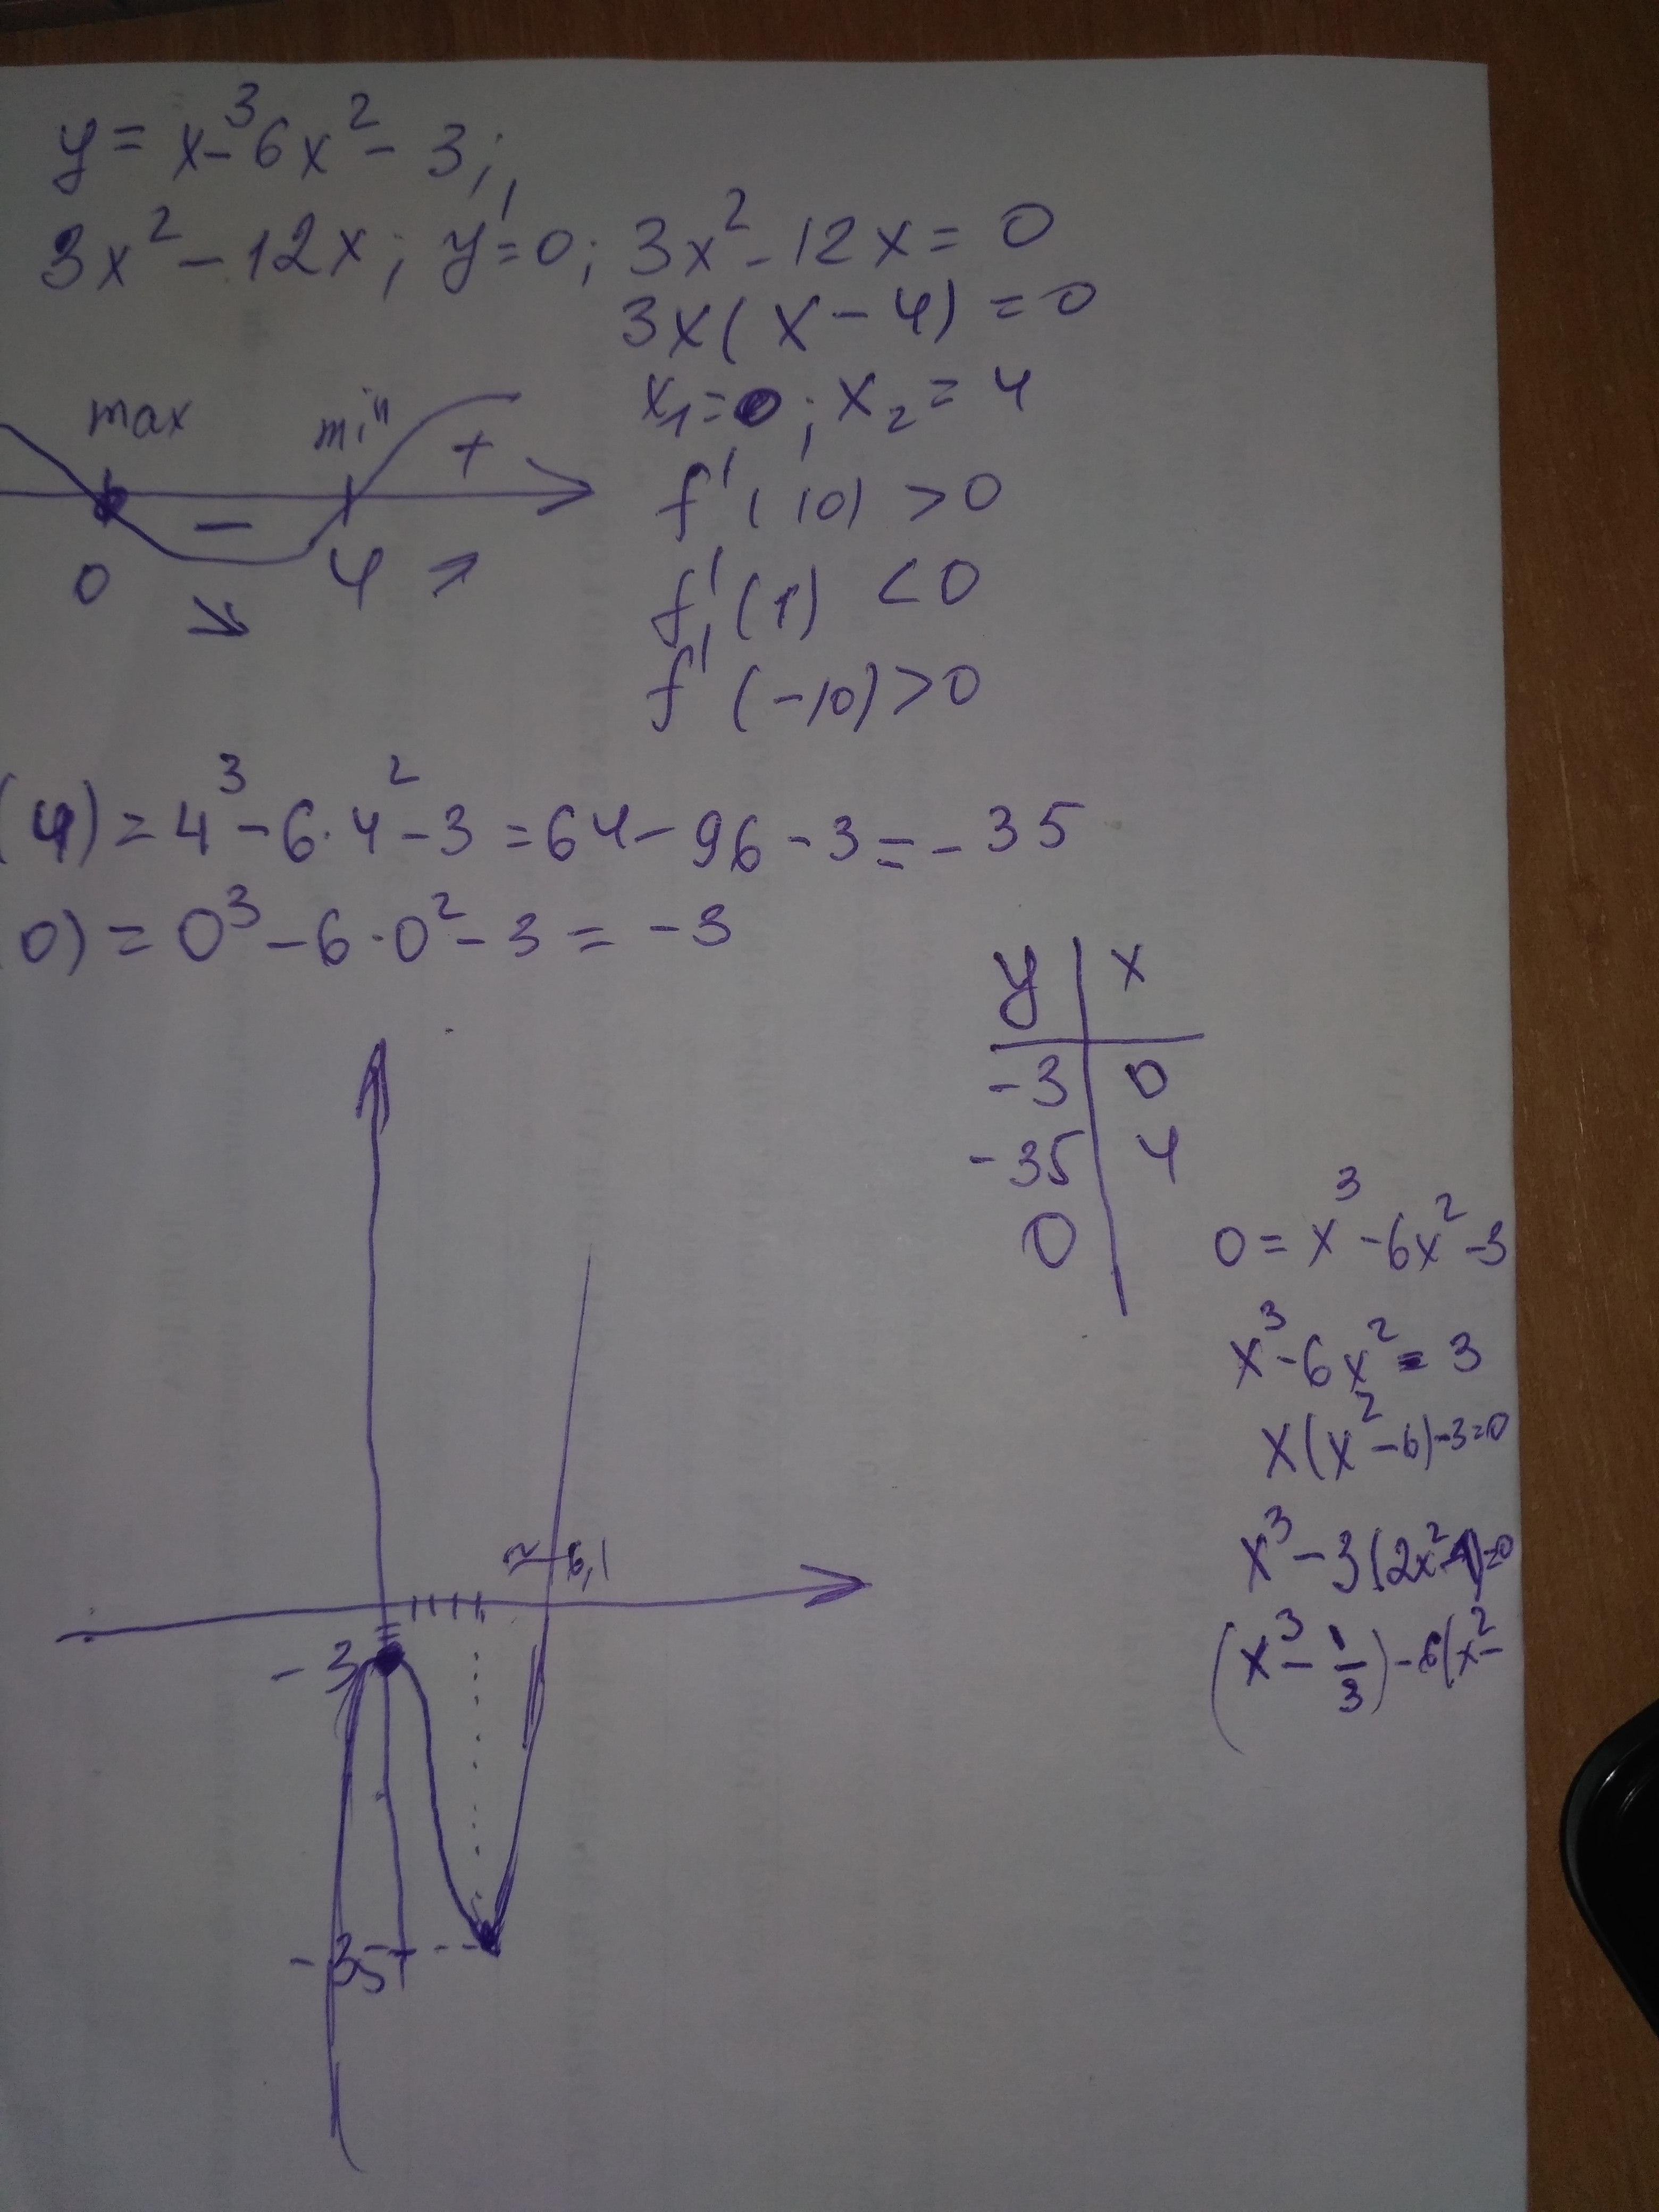 y = x³-6x² - 3;
3x² - 12x; y'=0; 3x² - 12x = 0
3x(x - 4) = 0
x₁=0; x₂ = 4
max min +
-
0 4
f'(10) > 0
f'(1) < 0
f'(-10) > 0
(4) = 4³ - 6·4² - 3 = 64 - 96 - 3 = -35
0) = 0³ - 6·0² - 3 = -3
y x
-3 0
-35 4
0
0 = x³ - 6x² - 3
x³ - 6x² = 3
x(x² - 6) - 3 = 0
x³ - 3(2x² - 1) = 0
(x³ - 1/3) - 6(x² -
≈6,1
-3
-35